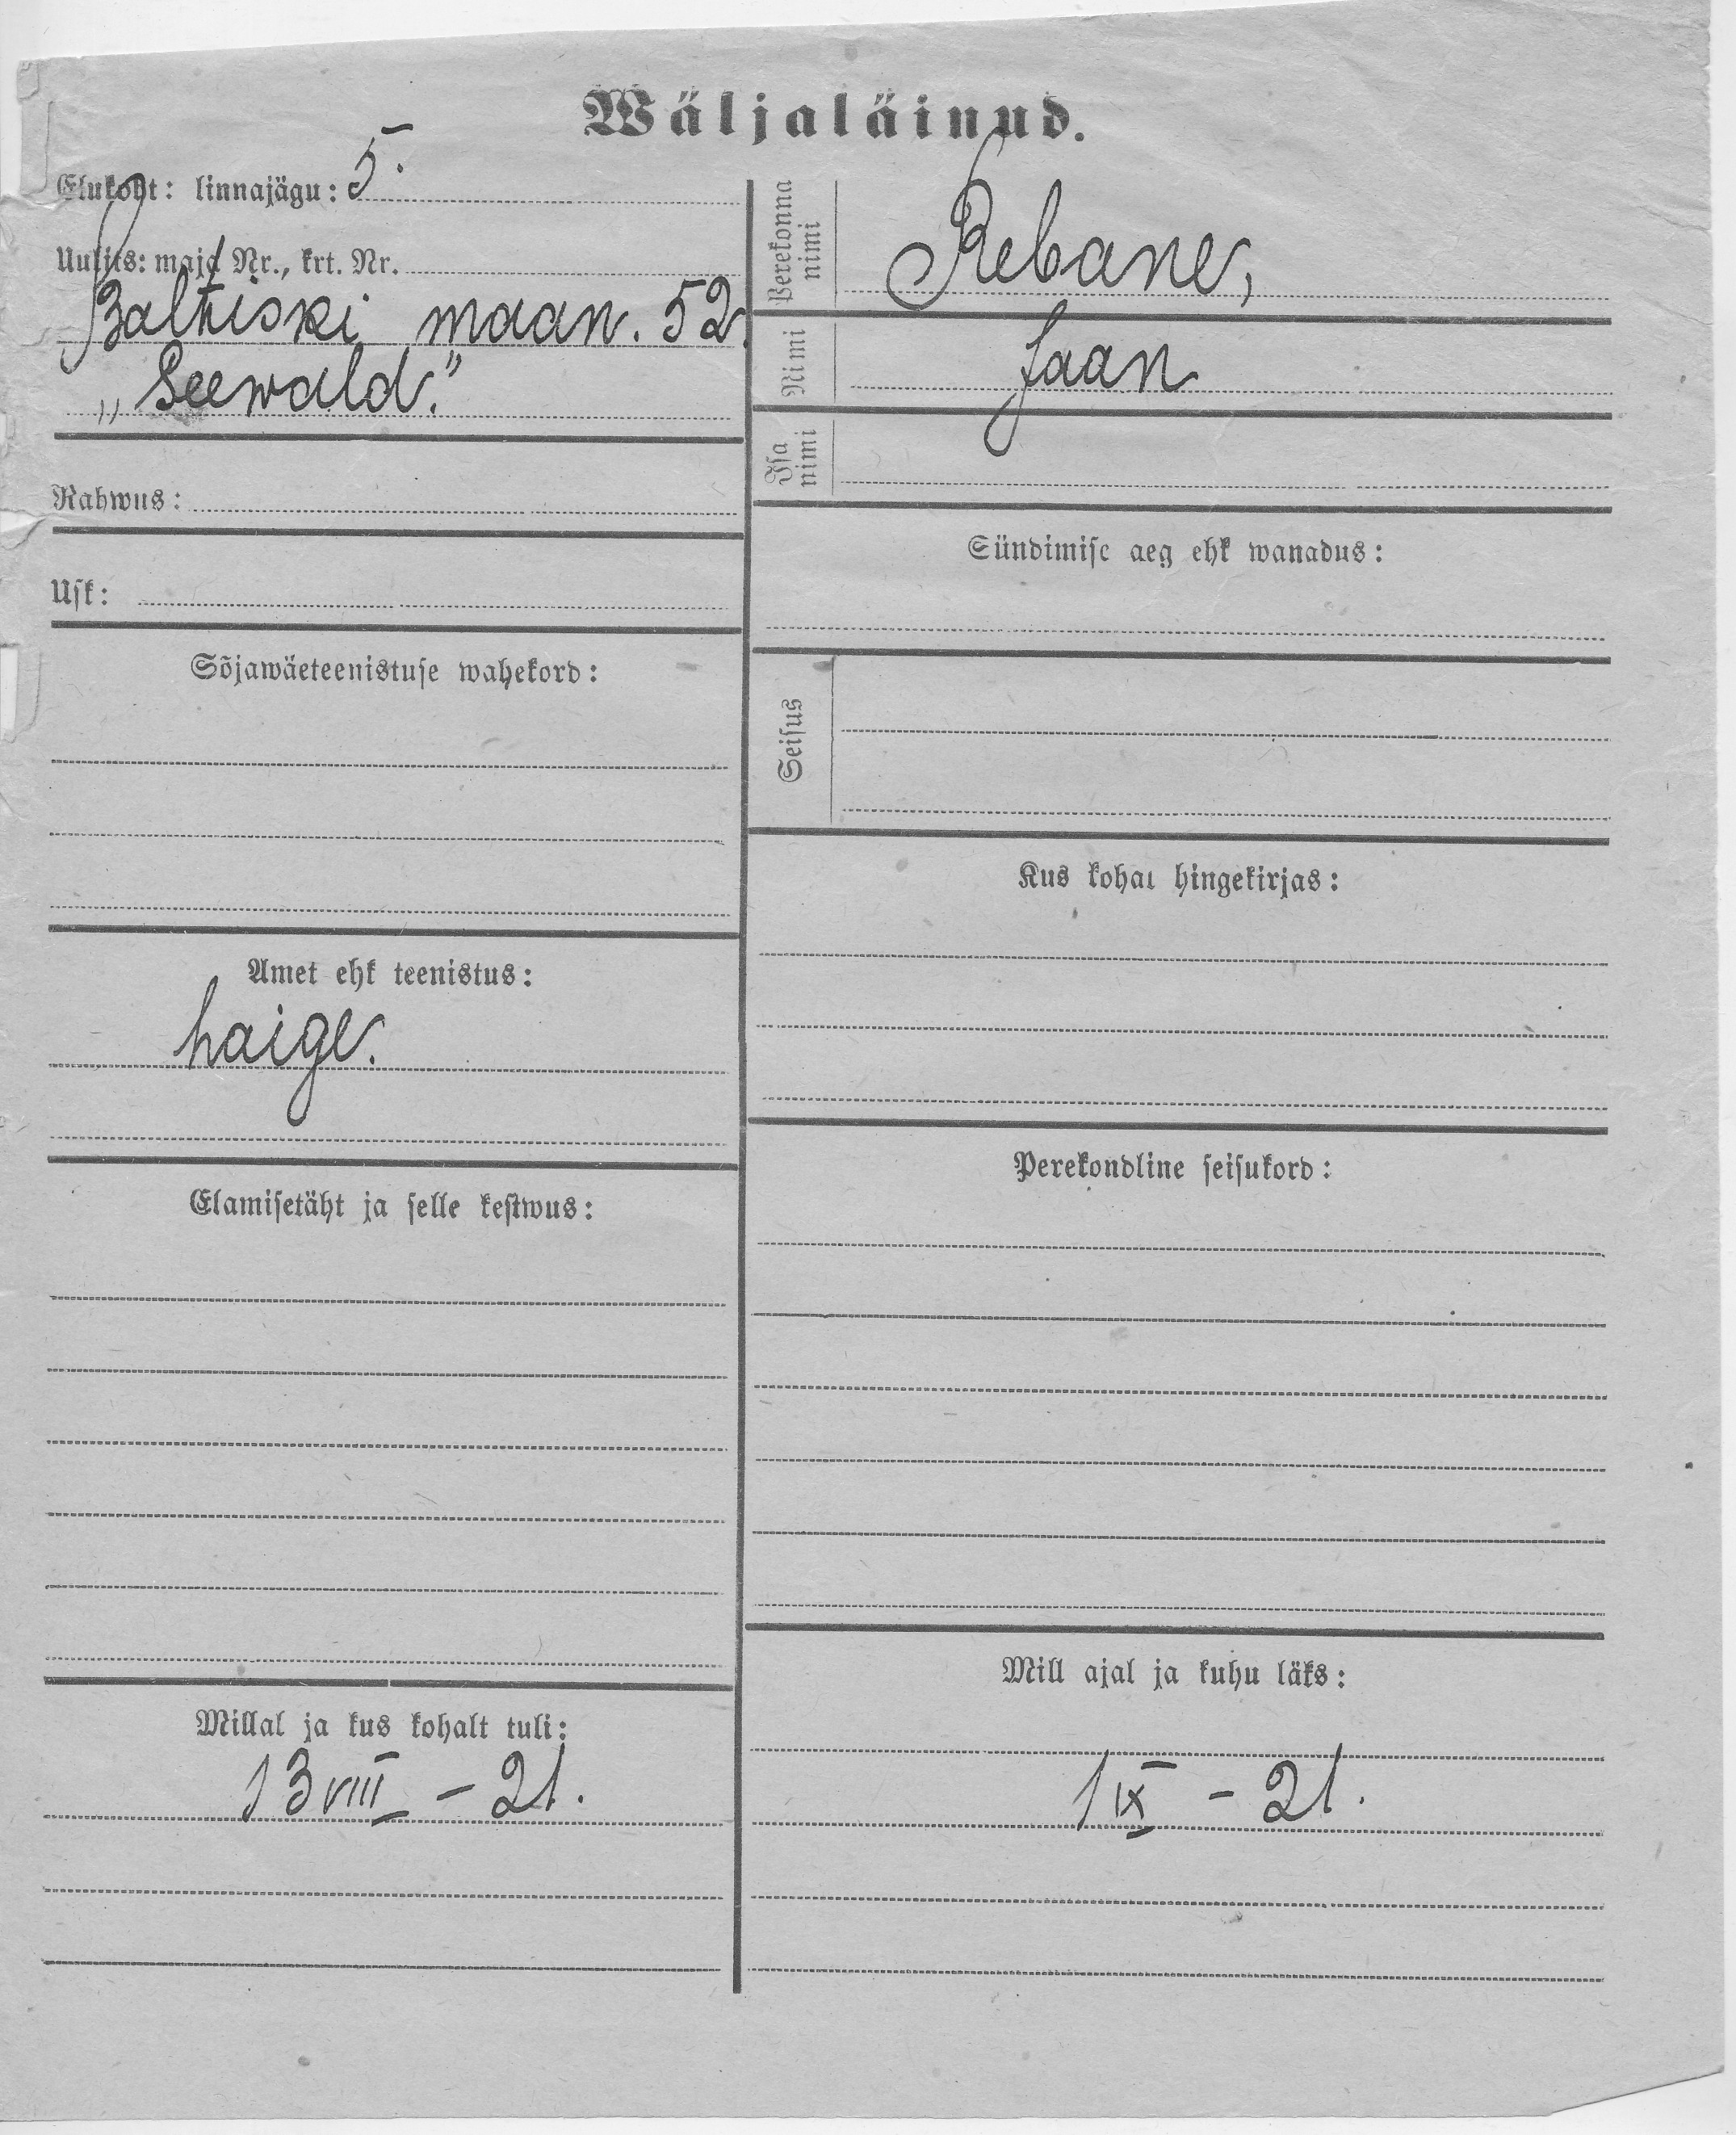 Wäljaläinud.
Elukoht: linnajägu: 5.
Uulits: maja Nr., krt. Nr.
Baltiski maan. 52.
„Seewald."
Rahwus:
Usk:
Sõjawäeteenistuse wahekord:
Amet ehk teenistus:
haige.
Elamisetäht ja selle kestwus:
Millal ja kus kohalt tuli:
13 VIII – 21.
Perekonna nimi
Rebane,
Nimi
Jaan
Isa nimi
Sündimise aeg ehk wanadus:
Seisus
Kus kohal hingekirjas:
Perekondline seisukord:
Mill ajal ja kuhu läks:
1 IX – 21.